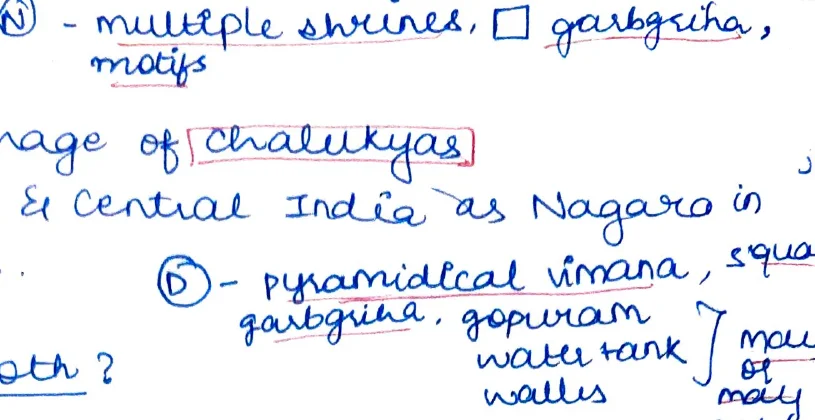 N - multiple shrines, □ garbgriha,
motifs
nage of chalukyas
& Central India as Nagara in
D - pyramidical vimana, squa
garbgriha, gopuram
water tank
walls
oth?